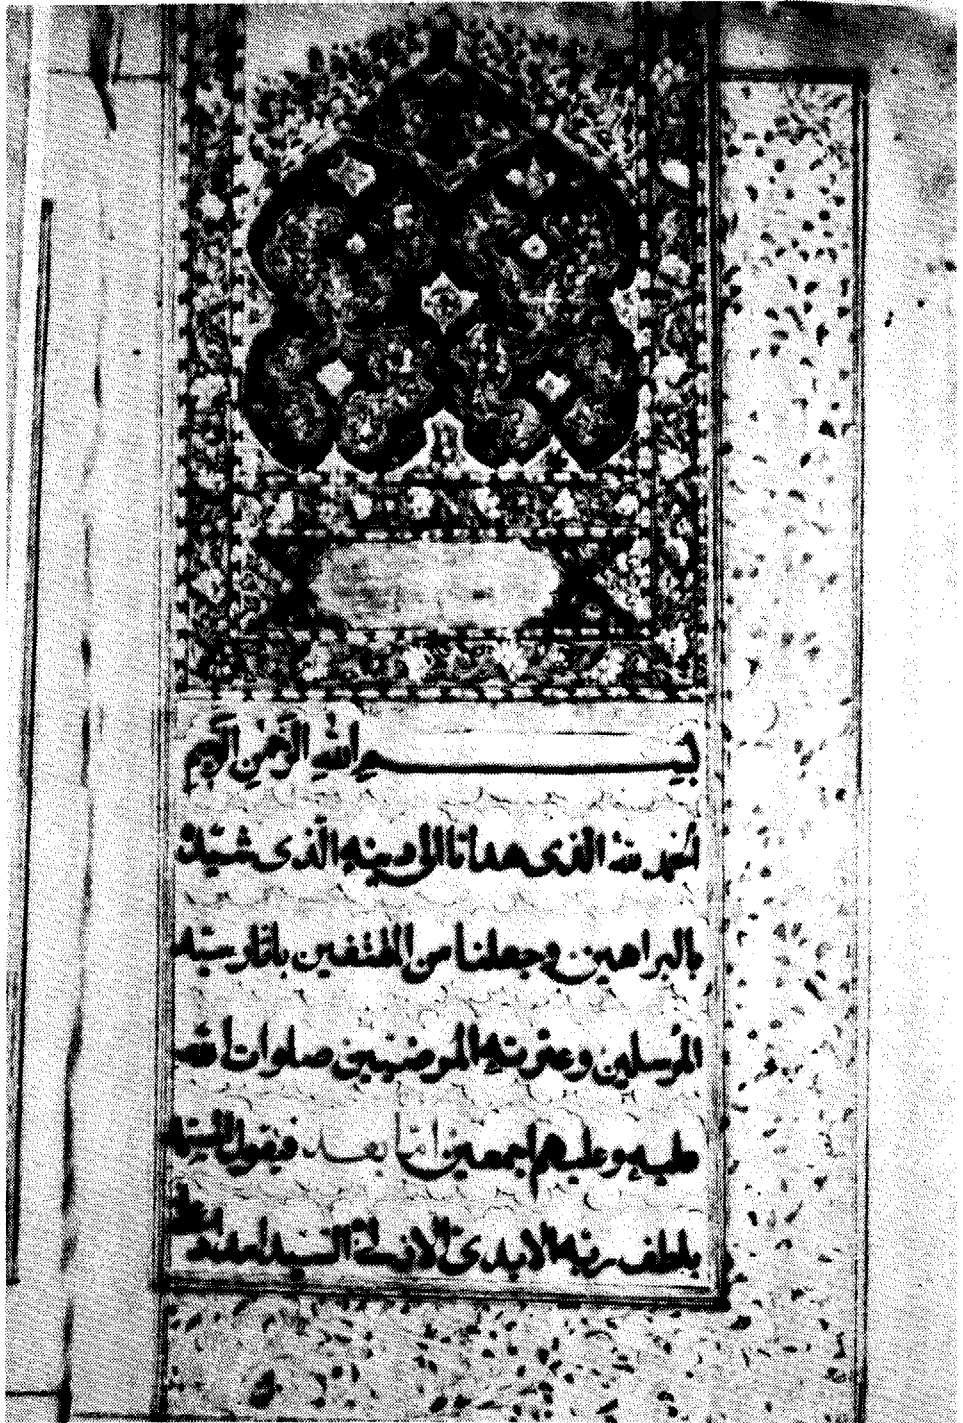 بسم الله الرحمن الرحيم
الحمد لله الذى هدانا الى دينه الذى شيّد
بالبراهين وجعلنا من المقتفين باثار سيّد
المرسلين وعترته المرضيين صلوات الله
عليه وعليهم اجمعين امّا بعد فيقول
بلطف ربّه الابدى السيد